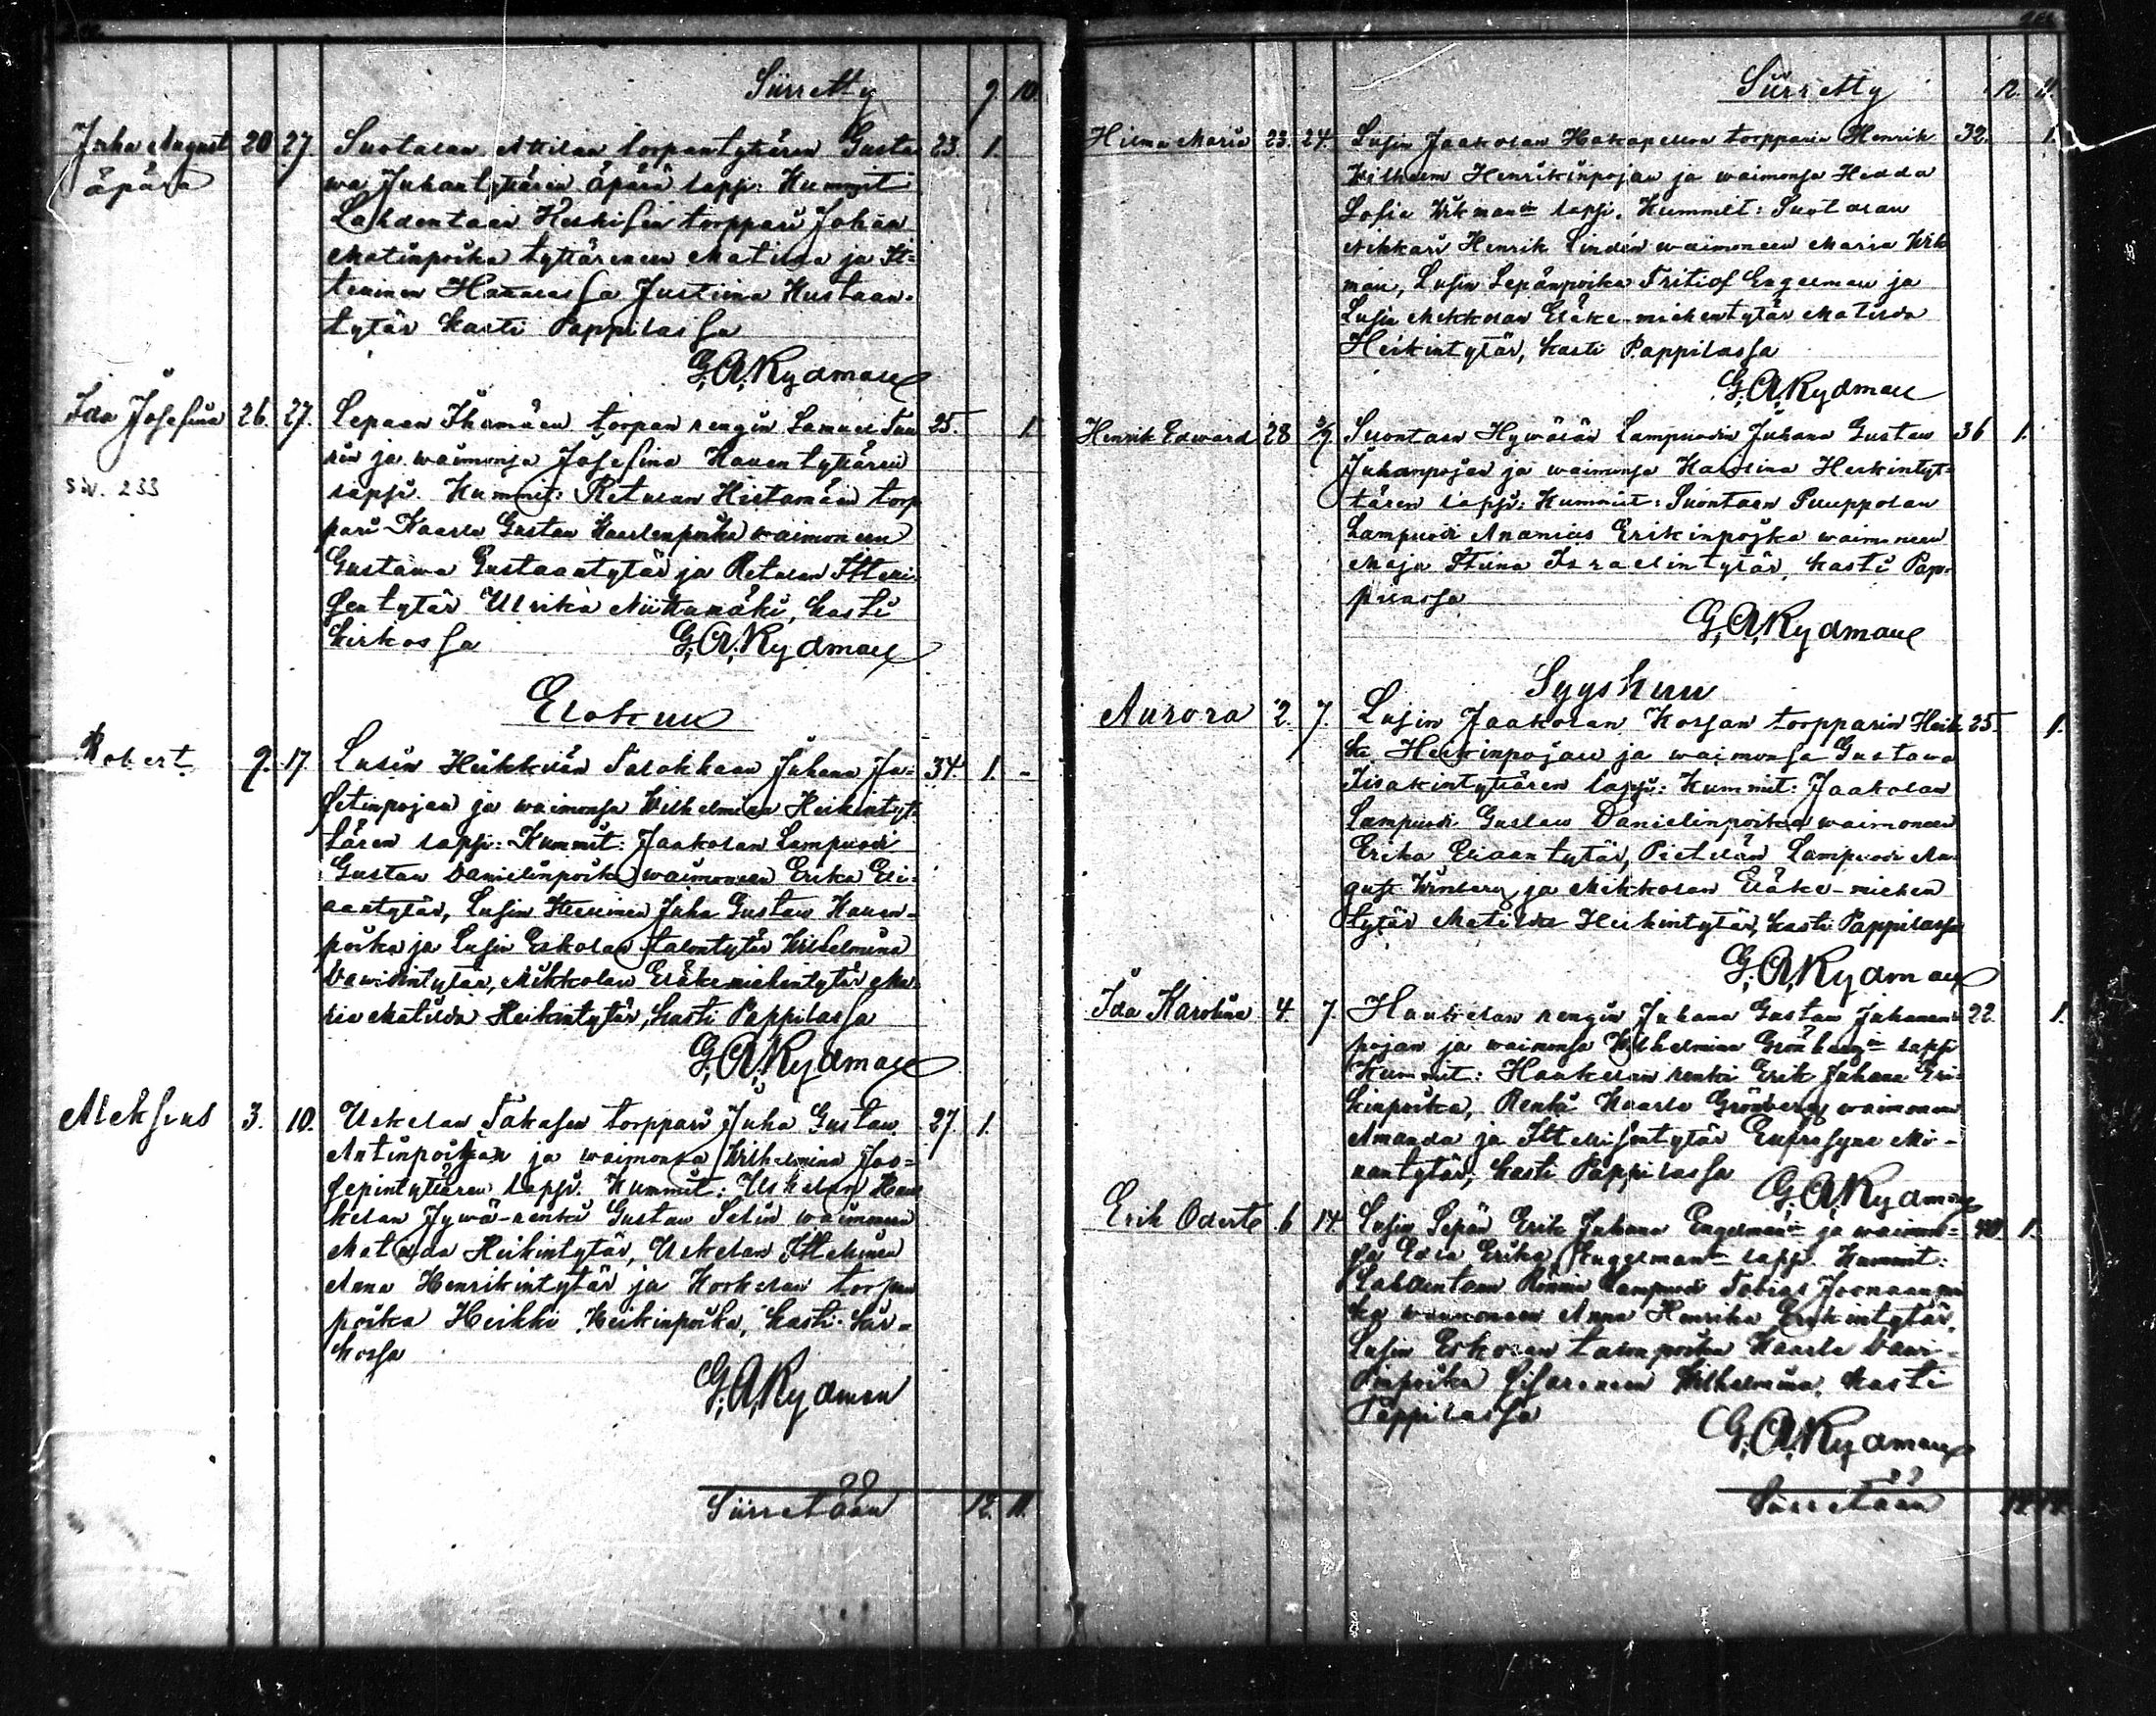 Siirretty 9. 10.
Juha August 20 27. Suotalan Attilan torpantyttären Gusta 23. 1.
äpärä wa Juhantyttären äpärä lapsi: Kummit
Lahdentaan Heikisin torppari Johan
Matinpoika tyttärineen Matilda ja It=
tellinen Justiina Kustaan-
tytär kasti Pappilassa
G.A.Rydman
Ida Josefina 26. 27. Lepaan torpan rengin Samuel 25. 1.
ja waimonsa Josefina tyttären
siv. 233
lapsi. Kummit: Retulan Hietamäen torp
pari Kaarle Gustaw Kaarlenpoika waimoneen
Gustawa Gustaantytär ja Retulan Ittelli-
sentytär Ulrika Niittumäki, kasti
kirkossa G.A.Rydman
Elokuu
Robert 9. 17. Lusin Heikkilän Talokkaan Juhana Jo= 34. 1. -
setinpojan ja waimonsa Wilhelmina Heikintyt-
tären lapsi: Kummit: Jaakolan Lampuodi
Gustaw Danielinpoika waimoneen Erika Eli=
aantytär, Lusin Juha Gustaw
poika ja Lusin Eskolan talontytär Wilhelmina
Dawidintytär, Mikkolan Eläkemiehintytär Ma-
ria Matilda Heikintytär, kasti Pappilassa
G.A.Rydman
Aleksius 3. 10. Uskelan Takasen torppari Juha Gustaw 27. 1.
Antinpoikan ja waimonsa Wilhelmina Joo=
sepintyttären lapsi. Kummit: Uskelan Hau
kelan Jywä-renki Gustaw Selin waimoneen
Matilda Heikintytär, Uskelan Ittellinen
Anna Henrikintytär ja torpan
poika Heikki Heikinpoika, kasti kir-
kossa
G.A.Rydman
Siirretään 12. 11.
Siirretty 12. 11.
Hilma Maria 23. 24. Lusin Jaakolan Hakapellon torpparin Henrik 32. 1.
Wilhelm Henrikinpojan ja waimonsa Hedda
Sofia Wikmanin lapsi. Kummit: Suotalan
Nikkari Henrik Lindén waimoneen Maria Wik
man, Lusin Sepänpoika Fritiof Engelman ja
Lusin Mikkolan Eläke-miehentytär Matilda
Heikintytär, kasti Pappilassa
G.A.Rydman
Henrik Edward 28 3/9. Suontaan Hywälän Lampuodin Juhana Gustaw 36 1.
Juhanpojan ja waimonsa Karolina Heikintyt=
tären lapsi: Kummit: Suontaan Puuppolan
Lampuodi Ananias Erikinpojka waimoneen
Maja Stiina Israelintytär, kasti Pap-
pilassa
G.A.Rydman
Syyskuu
Aurora 2. 7. Lusin Jaakolan Korsan torpparin Heik 25. 1.
ki Heikinpojan ja waimonsa Gustawa
Iisakintyttären lapsi: Kummit: Jaakolan
Lampuodi Gustaw Danielinpoika waimoneen
Erika Eliaantytär, Pietilän Lampuodi Au-
gust ja Mikkolan Eläke-miehen
tytär Matilda Heikintytär, kasti Pappilassa
G.A.Rydman
Ida Karolina 4. 7. Haukelan rengin Juhana Gustaw Juhanan- 22. 1.
pojan ja waimonsa Wilhelmina Grönbergin lapsi
Kummit: Haukelan renki Erik Juhana Eri-
kinpoika, Renki Kaarle Grönberg waimoneen
Amanda ja Ittellisentytär Eufrosyne Mi-
nantytär, kasti Pappilassa
G.A.Rydman
Erik Oderte 6 14 Lusin Sepän Erik Juhana Engelmanin ja waimon= 40 1.
sa Edla Erika Engelmanin lapsi. Kummit:
Lahdentaan Lampuodi Tobias Joonaanpoi
ka waimoneen Anna Henrika Erikintytär,
Lusin Eskolan talonpoika Kaarle Dawi-
dinpoika sisarineen Wilhelmina, kasti
Pappilassa
G.A.Rydman
Siirretään